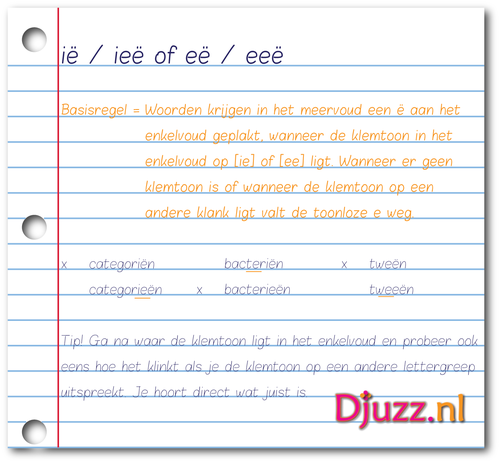 ië / ieë of eë / eeë
Basisregel = Woorden krijgen in het meervoud een ë aan het
enkelvoud geplakt, wanneer de klemtoon in het
enkelvoud op [ie] of [ee] ligt. Wanneer er geen
klemtoon is of wanneer de klemtoon op een
andere klank ligt valt de toonloze e weg.
x categoriën bacteriën x tweën
categorieën x bacterieën tweeën
Tip! Ga na waar de klemtoon ligt in het enkelvoud en probeer ook
eens hoe het klinkt als je de klemtoon op een andere lettergreep
uitspreekt. Je hoort direct wat juist is.
Djuzz.nl